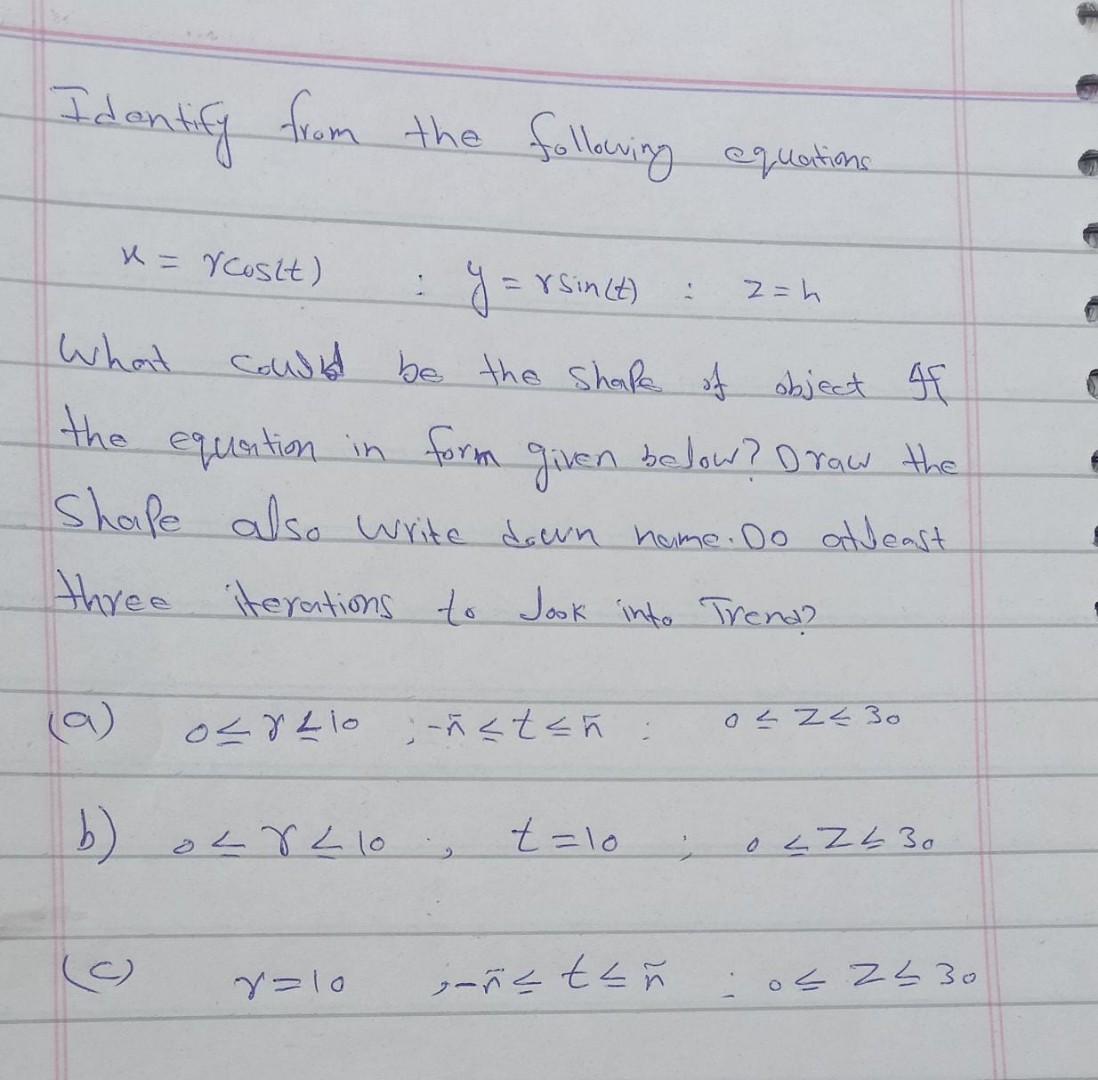 Identify from the following equations
x = rcos(t) : y = rsin(t) : z = h
What could be the shape of object if
the equation in form given below? Draw the
Shape also write down name. Do atleast
three iterations to look into Trend?
(a) 0 ≤ r ≤ 10 ; -π ≤ t ≤ π : 0 ≤ z ≤ 30
b) 0 ≤ r ≤ 10 ; t = 10 ; 0 ≤ z ≤ 30
(c) r = 10 , -π ≤ t ≤ π : 0 ≤ z ≤ 30